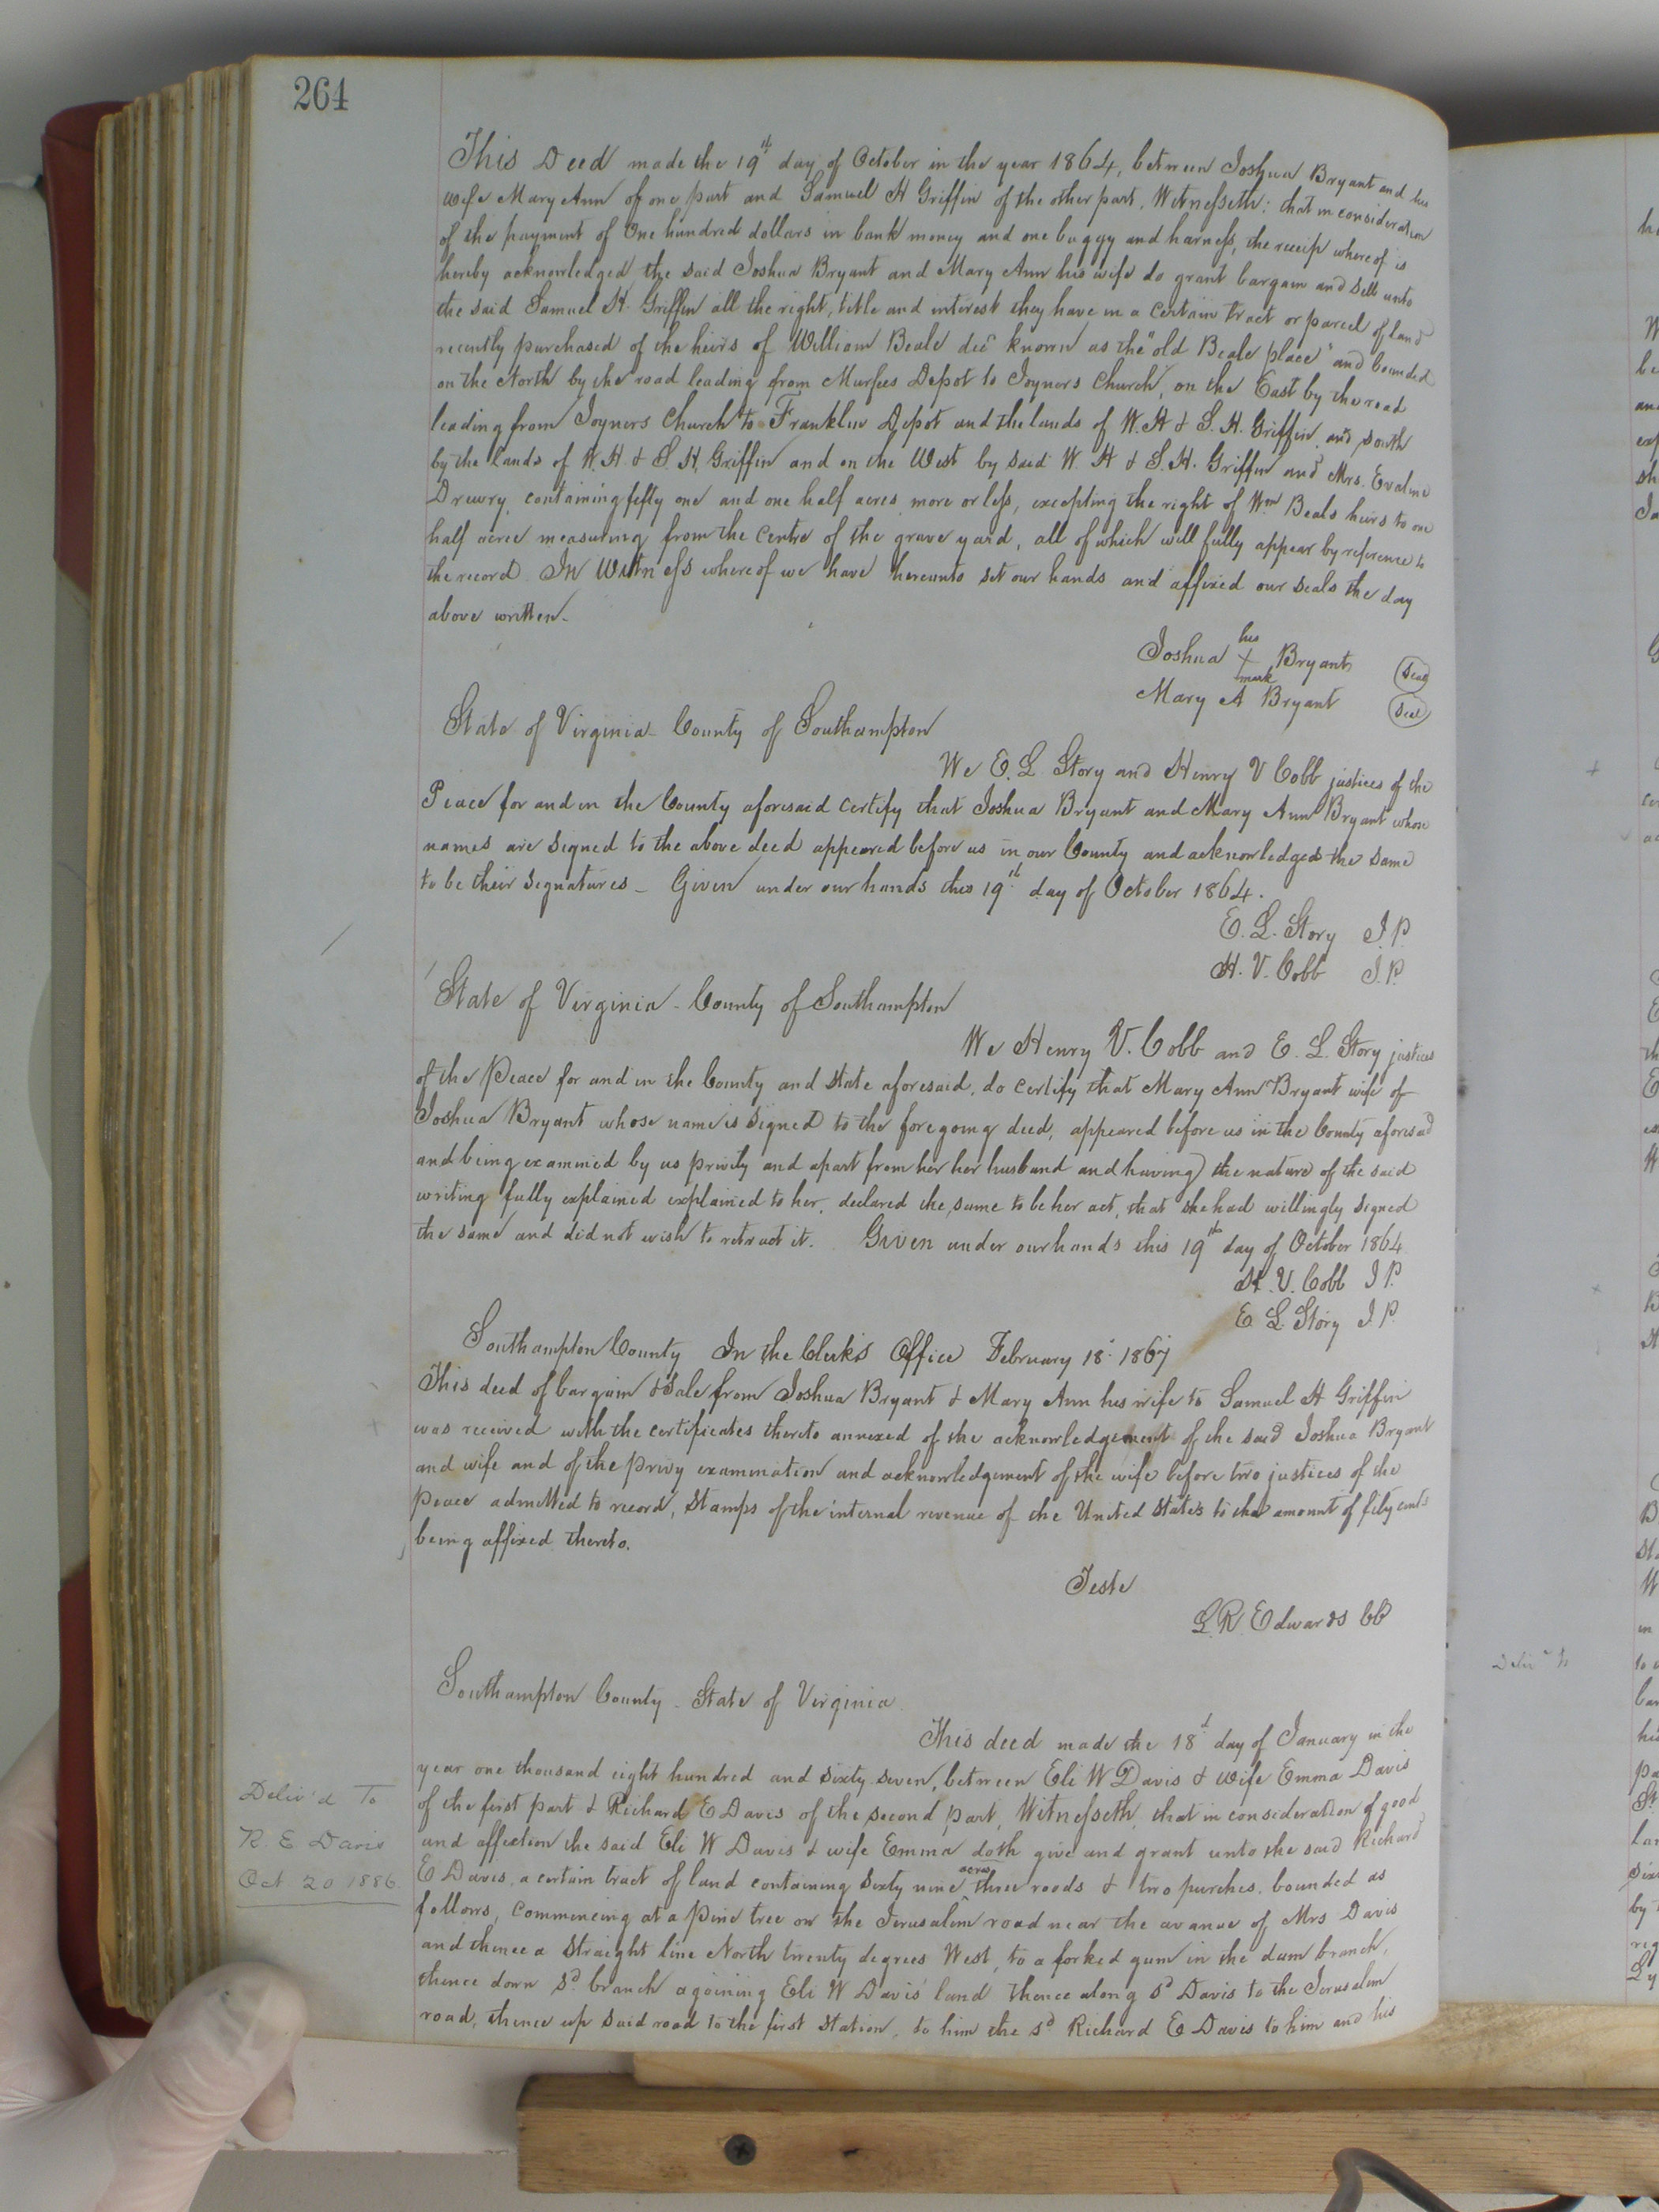 264
This Deed made the 19th day of October in the year 1864, between Joshua Bryant and his
wife Mary Ann of one part and Samuel H Griffin of the other part, Witnesseth: that in consideration
of the payment of One hundred dollars in bank money and one buggy and harness, the receip whereof is
hereby acknowledged the said Joshua Bryant and Mary Ann his wife do grant bargain and sell unto
the said Samuel H. Griffin all the right, title and interest they have in a certain tract or parcel of land
recently purchased of the heirs of William Beale decd known as the "old Beale place" and bounded
on the North by the road leading from Murfees Depot to Joyners Church, on the East by the road
leading from Joyners Church to Franklin Depot and the lands of W. H & S. H. Griffin, and South
by the lands of W. H & S. H. Griffin and on the West by said W. H & S. H. Griffin and Mrs. Evaline
Drewry, containing fifty one and one half acres, more or less, excepting the right of Wm Beals heirs to one
half acree measuring from the centre of the grave yard, all of which will fully appear by reference to
the record. In Witness whereof we have hereunto set our hands and affixed our seals the day
above written.
his
Joshua X Bryant (Seal)
mark
Mary A Bryant (Seal)
State of Virginia - County of Southampton
We E. L. Story and Henry V Cobb justices of the
Peace for and in the County aforesaid certify that Joshua Bryant and Mary Ann Bryant whose
names are signed to the above deed appeared before us in our County and acknowledged the same
to be their signatures - Given under our hands this 19th day of October 1864.
E. L. Story J. P.
H. V. Cobb J. P.
State of Virginia - County of Southampton
We Henry V. Cobb and E. L. Story justices
of the Peace for and in the County and State aforesaid, do certify that Mary Ann Bryant wife of
Joshua Bryant whose name is signed to the foregoing deed, appeared before us in the County aforesaid
and being examined by us privily and apart from her her husband and having the nature of the said
writing fully explained explained to her, declared the same to be her act, that she had willingly signed
the same and did not wish to retract it. Given under our hands this 19th day of October 1864
H. V. Cobb J P.
E. L. Story J. P.
Southampton County In the Clerk's Office February 18. 1867
This deed of bargain & sale from Joshua Bryant & Mary Ann his wife to Samuel H Griffin
was received with the certificates thereto annexed of the acknowledgement of the said Joshua Bryant
and wife and of the privy examination and acknowledgement of the wife before two justices of the
peace admitted to record, stamps of the internal revenue of the United States to the amount of fifty cents
being affixed thereto.
Teste
L. R. Edwards CC
Southampton County - State of Virginia
This deed made the 18th day of January in the
year one thousand eight hundred and sixty seven, between Eli W Davis & wife Emma Davis
of the first part & Richard E Davis of the second part, Witnesseth, that in consideration of good
and affection the said Eli W Davis & wife Emma doth give and grant unto the said Richard
E Davis, a certain tract of land containing sixty nine acres three roods & two purches, bounded as
follows, Commencing at a pine tree on the Jerusalem road near the avanue of Mrs Davis
and thence a straight line North twenty degrees West, to a forked gum in the dum branch,
thence down sd branch ajoining Eli W Davis' land thence along sd Davis to the Jerusalem
road, thence up said road to the first station, to him the sd Richard E Davis to him and his
Deliv'd To
R. E Davis
Oct. 20 1886.